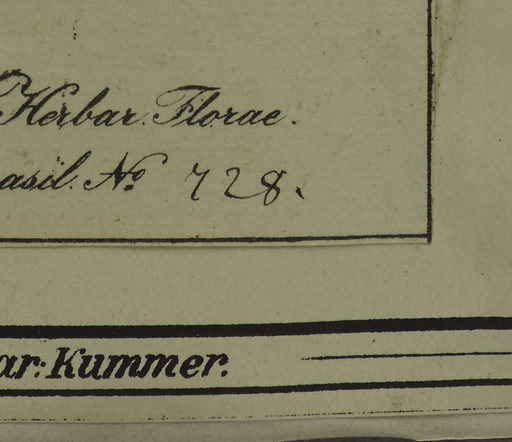 Herbar. Florae.
asil. No 728.
ar: Kummer.